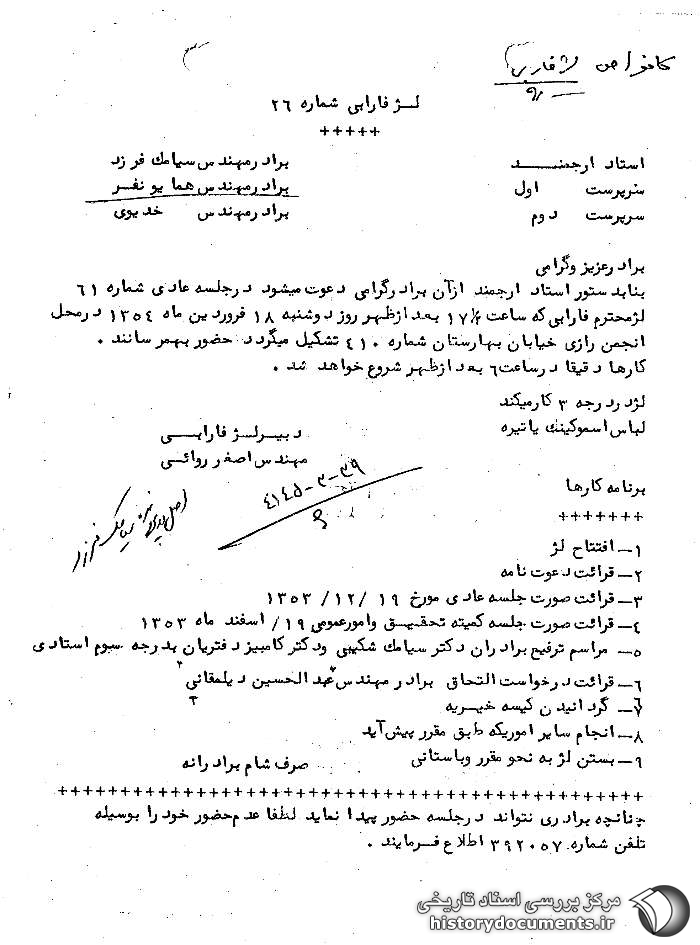 لژ فارابی
لژ فارابی شماره ۲۶
+++++
استاد ارجمند برادر مهندس سیامك فرزد
سرپرست اول برادر مهندس همایونفر
سرپرست دوم برادر مهندس خدیوی
برادر عزیز وگرامی
بنابدستور استاد ارجمند ازآن برادر گرامی دعوت میشود درجلسه عادی شماره ۶۱
لژ محترم فارابی که ساعت ۱۷/۴ بعد ازظهر روز دوشنبه ۱۸ فروردین ماه ۱۳۵۴ درمحل
انجمن رازی خیابان بهارستان شماره ۴۱۰ تشکیل میگردد حضور بهمرسانند .
کارها دقیقا درساعت ۶ بعد ازظهر شروع خواهد شد .
لژ در درجه ۳ کارمیکند
لباس اسموکینك یاتیره
دبیر لژ فارابی
مهندس اصغر روائی
۴۱۴۵-۳-۳۹
برنامه کارها
+++++++
۱- افتتاح لژ
۲- قرائت دعوت نامه
۳- قرائت صورت جلسه عادی مورخ ۱۹ /۱۲/ ۱۳۵۳
۴- قرائت صورت جلسه کمیته تحقیق وامورعمومی ۱۹/ اسفند ماه ۱۳۵۳
۵- مراسم ترفیع برادران دکتر سیامك شکیبی ودکتر کامبیز دفتریان بدرجه سوم استادی
۶- قرائت درخواست التحاق برادر مهندس عبدالحسین دیلمقانی
۷- گردانیدن کیسه خیریه
۸- انجام سایر اموریکه طبق مقرر پیش آید
۹- بستن لژ به نحو مقرر وباستانی صرف شام برادرانه
+++++++++++++++++++++++++++++++++++++++++++++++
چنانچه برادری نتواند درجلسه حضور پیدا نماید لطفا عدم حضور خود را بوسیله
تلفن شماره ۳۹۲۰۵۷ اطلاع فرمایند .
مرکز بررسی اسناد تاریخی
historydocuments.ir